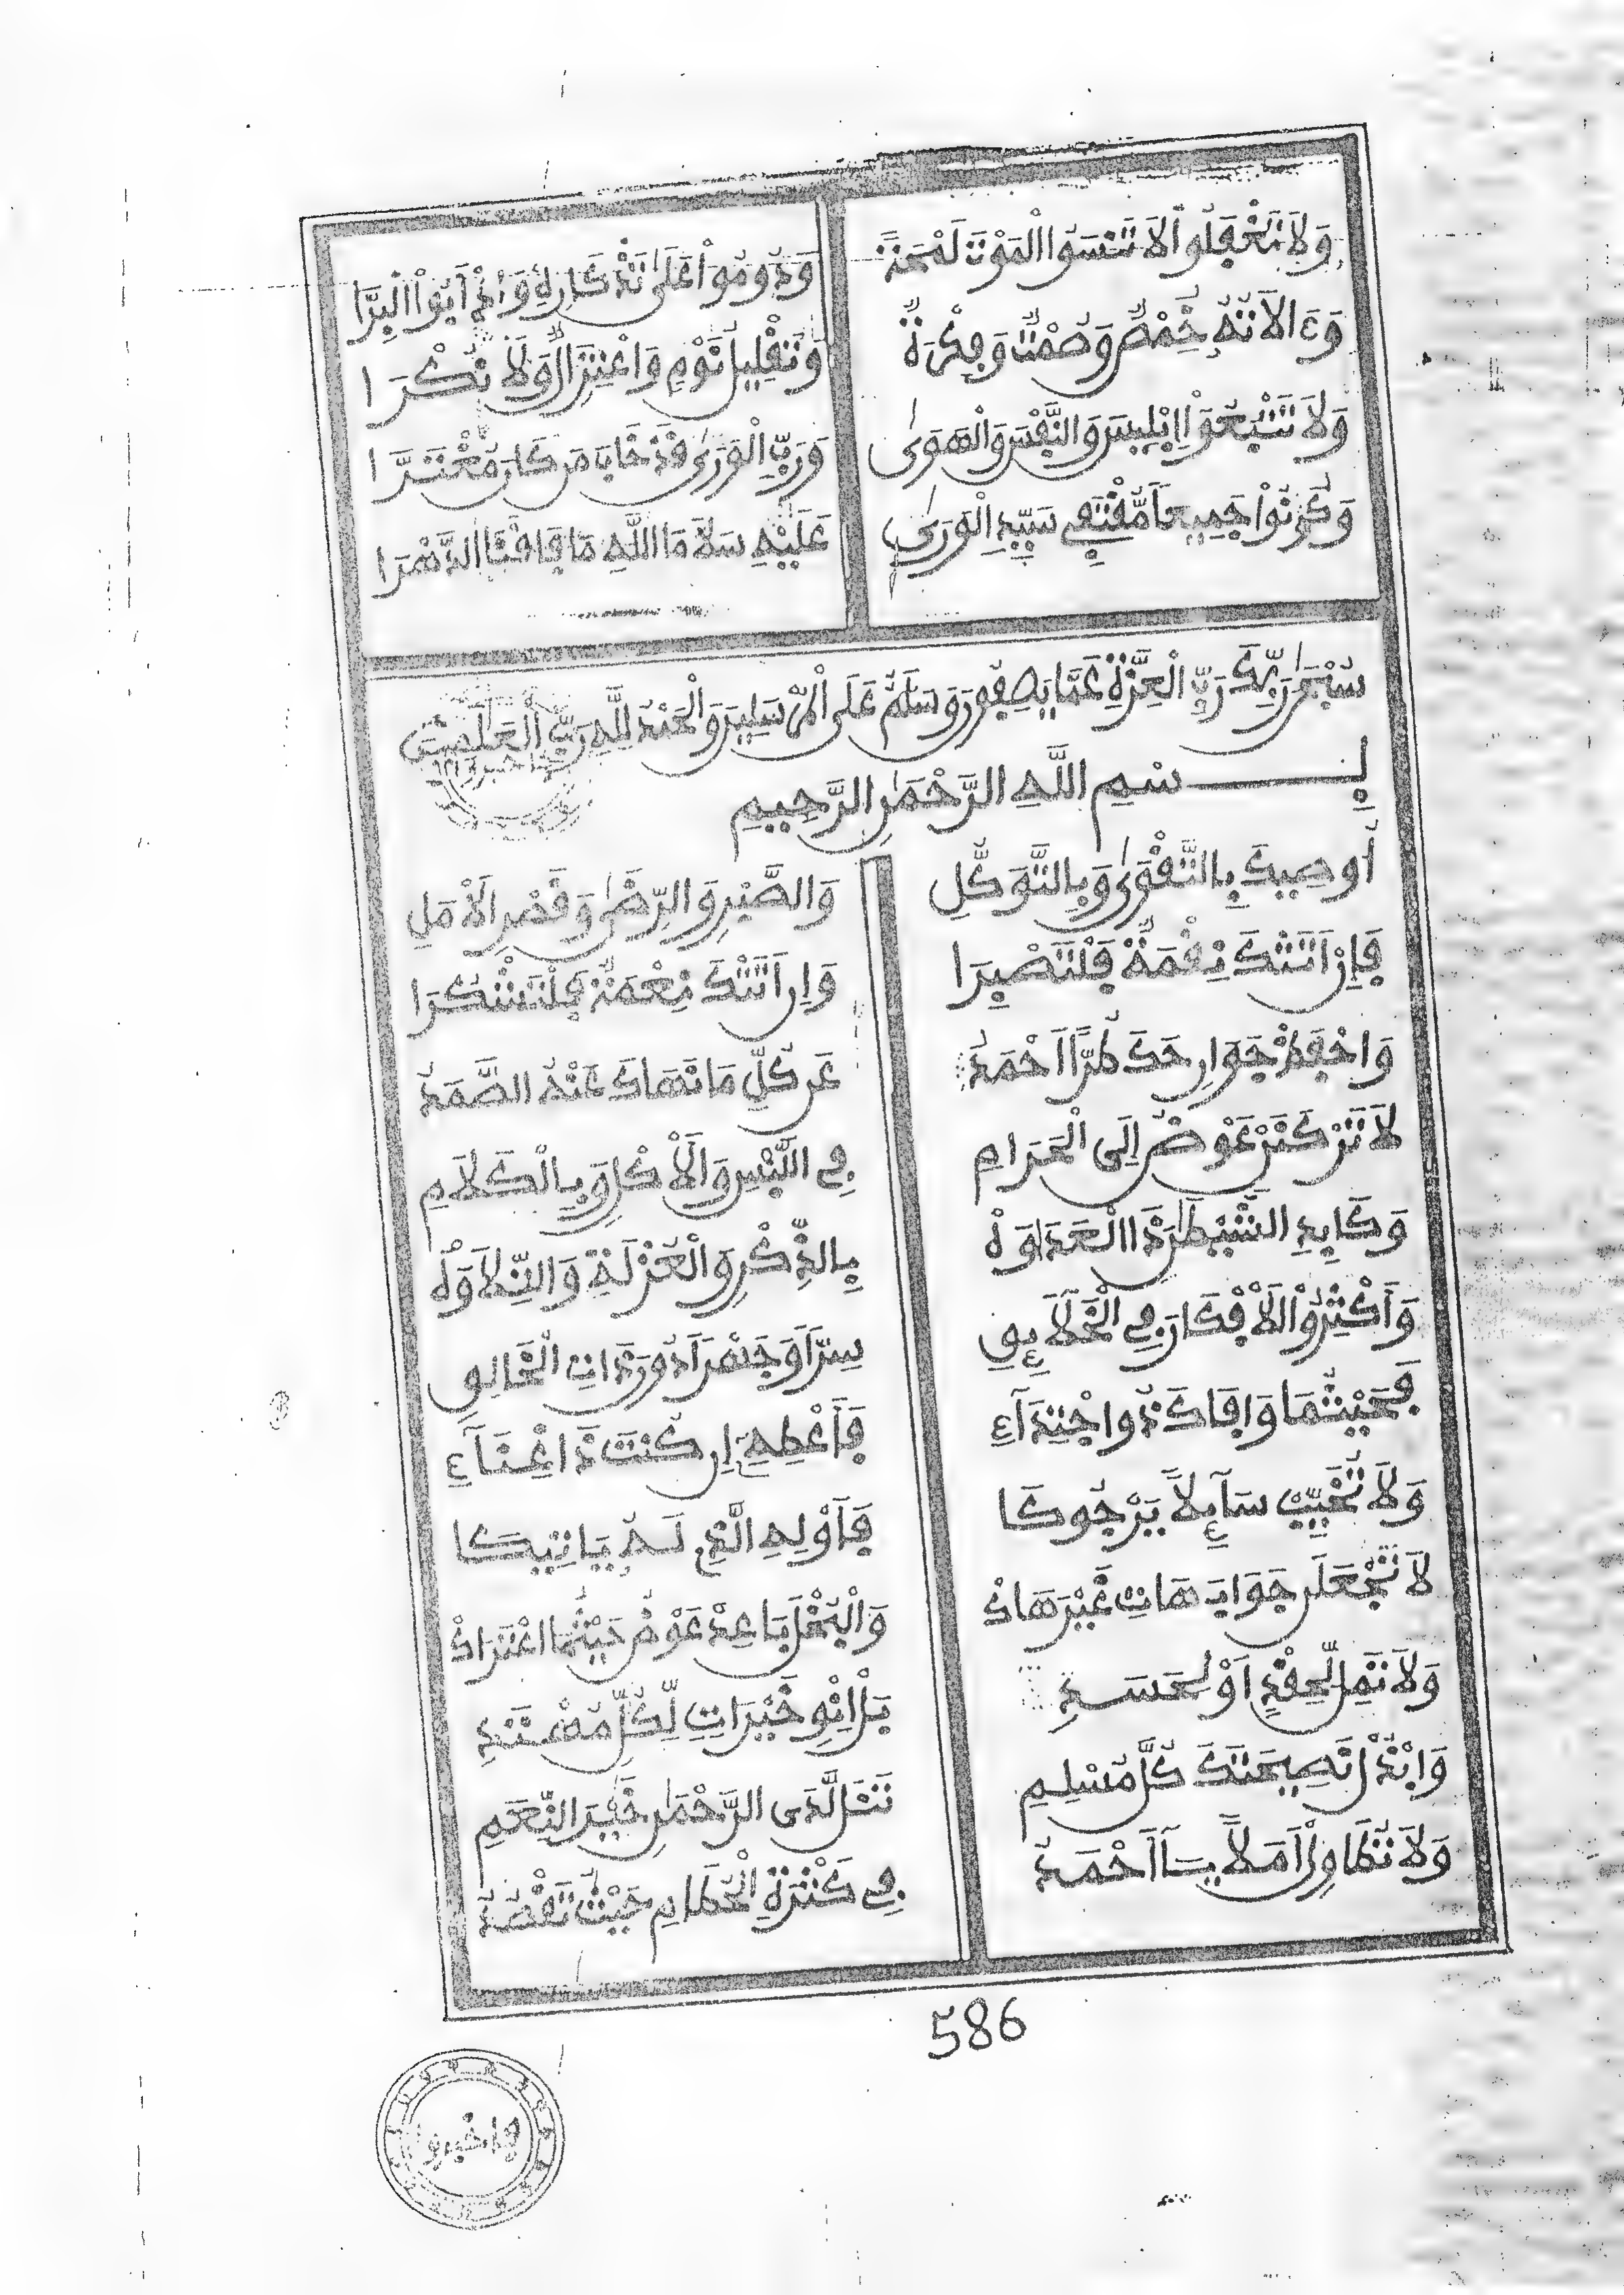 وَلَا تَغْفُلُوا أَلَا تَنْسَوُا الْمَوْتَ لَمْحَةً وَدُومُوا عَلَى تَذْكَارِهِ وَادْأَبُوا الْبِرَّا
وَءَالَاتُهُ خَمْصٌ وَصَمْتٌ وَفِكْرَةٌ وَتَقْلِيلُ نَوْمٍ وَاعْتِزَالٌ وَلَا نُكْرَا
وَلَا تَتْبَعُوا إِبْلِيسَ وَالنَّفْسَ وَالْهَوَى وَرَبِّ الْوَرَى قَدْ خَابَ مَن كَانَ مُغْتَرَّا
وَكُونُوا جَمِيعًا مُقْتَفِي سَيِّدِ الْوَرَى عَلَيْهِ سَلَامَا اللَّهِ مَا فَاقَتَا الدَّهْرَا
سُبْحَٰنَ رَبِّكَ رَبِّ الْعِزَّةِ عَمَّا يَصِفُونَ وَسَلَٰمٌ عَلَى الْمُرْسَلِينَ وَالْحَمْدُ لِلَّهِ رَبِّ الْعَٰلَمِينَ
بِسْمِ اللَّهِ الرَّحْمَٰنِ الرَّحِيمِ
أُوصِيكَ بِالتَّقْوَى وَبِالتَّوَكُّلِ وَالصَّبْرِ وَالرِّضَى وَقَصْرِ الْأَمَلِ
فَإِنْ أَتَتْكَ نِقْمَةٌ فَلْتَصْبِرَا وَإِن أَتَتْكَ نِعْمَةٌ فَلْتَشْكُرَا
وَاحْفَظْ جَوَارِحَكَ طُرًّا أَحْمَدُ عَن كُلِّ مَا نَهَاكَ عَنْهُ الصَّمَدُ
لَا تَرْكَنَنْ عَوْضُ إِلَى الْحَرَامِ فِي اللُّبْسِ وَالْأَكْلِ وَبِالْكَلَامِ
وَكَايِدِ الشَّيْطَٰنَ ذَا الْعَدَاوَهْ بِالذِّكْرِ وَالْعُزْلَةِ وَالتِّلَاوَهْ
وَأَكْثِرُوا الْأَفْكَارَ فِي الْخَلَائِقِ سِرًّا وَجَهْرًا دُونَ ذَاتِ الْخَالِقِ
فَحَيْثُمَا وَافَاكَ ذُو اجْتِدَاءِ فَأَعْطِهِ إِن كُنتَ ذَا غِنَاءِ
وَلَا تُخَيِّبْ سَائِلًا يَرْجُوكَا فَأَوْلِهِ الَّذِي لَهُ يَاتِيكَا
لَا تَجْعَلَن جَوَابَ هَاتِ غَيْرَ هَاكْ وَالْبُخْلَ بَاعِدْ عَوْضُ حَيْثُمَا اعْتَرَاكْ
وَلَا تَمِلْ لِحِقْدٍ أَوْ لِحَسَدِ بَلْ انْوِ خَيْرَاتٍ لِكُلِّ مُهْتَدِ
وَابْذُلْ نَصِيحَتَكَ كُلَّ مُسْلِمِ تَنَلْ لَدَى الرَّحْمَٰنِ خَيْرَ النِّعَمِ
وَلَا تُطَاوِلْ أَمَلًا يَا أَحْمَدُ فِي كَثْرَةِ الْحُطَامِ حَيْثُ تَقْصِدُ
586